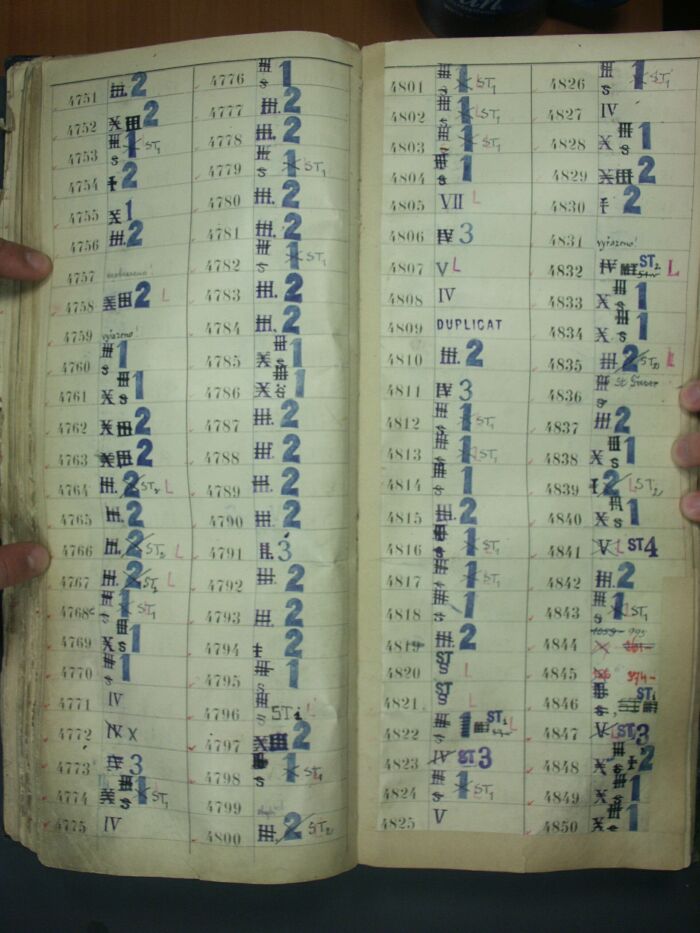 4751 III. 2
4752 X III 2
4753 III s 1 ST1
4754 I 2
4755 X 1
4756 III. 2
4757
4758 X III 2 L
4759 vyřazeno!
4760 III s 1
4761 X III s 1
4762 X III 2
4763 X III 2
4764 III. 2 ST2 L
4765 III. 2
4766 III. 2 ST2 L
4767 III. 2 ST2 L
4768 III s 1 ST1
4769 X III s 1
4770 III s 1
4771 IV
4772 IV X
4773 IV 3
4774 X III s 1 ST1
4775 IV
4776 III s 1
4777 III. 2
4778 III. 2
4779 III s 1 ST1
4780 III. 2
4781 III. 2
4782 III s 1 ST1
4783 III. 2
4784 III. 2
4785 X III s 1
4786 X III s 1
4787 III. 2
4788 III. 2
4789 III. 2
4790 III. 2
4791 II. 3
4792 III. 2
4793 III. 2
4794 I 2
4795 III s 1
4796 III s ST1 L
4797 X III 2
4798 III s 1 ST1
4799
4800 III. 2 ST2
4801 III s 1 ST1
4802 III s 1 LST1
4803 III s 1 ST1
4804 III s 1
4805 VII L
4806 IV 3
4807 V L
4808 IV
4809 DUPLICAT
4810 III. 2
4811 IV 3
4812 III s 1 ST1
4813 III s 1 ST1
4814 III s 1
4815 III. 2
4816 III s 1 ST1
4817 III s 1 ST1
4818 III s 1
4819 III. 2
4820 ST s L
4821 ST s L
4822 III s 1 III ST1 L
4823 IV ST 3
4824 III s 1 ST1
4825 V
4826 III s 1 ST1
4827 IV
4828 X III s 1
4829 X III 2
4830 I 2
4831 vyřazeno!
4832 IV III ST2 L
4833 X III s 1
4834 X III s 1
4835 III. 2 ST2 L
4836 III s St
4837 III 2
4838 X III s 1
4839 I 2 L ST2
4840 X III s 1
4841 V L ST4
4842 III. 2
4843 III s 1 ST1
4844 X
4845 974-
4846 III s. ST1
4847 V ST3
4848 X III s I 2
4849 X III s 1
4850 X III s 1